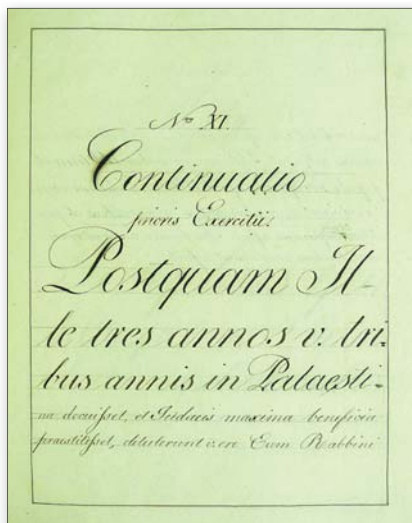 No XI.
Continuatio
prioris Exercitii.
Postquam Il-
le tres annos v. tri-
bus annis in Palaesti-
na docuisset, et Judaeis maxima beneficia
praestitisset, detulerunt vero Eum Rabbini